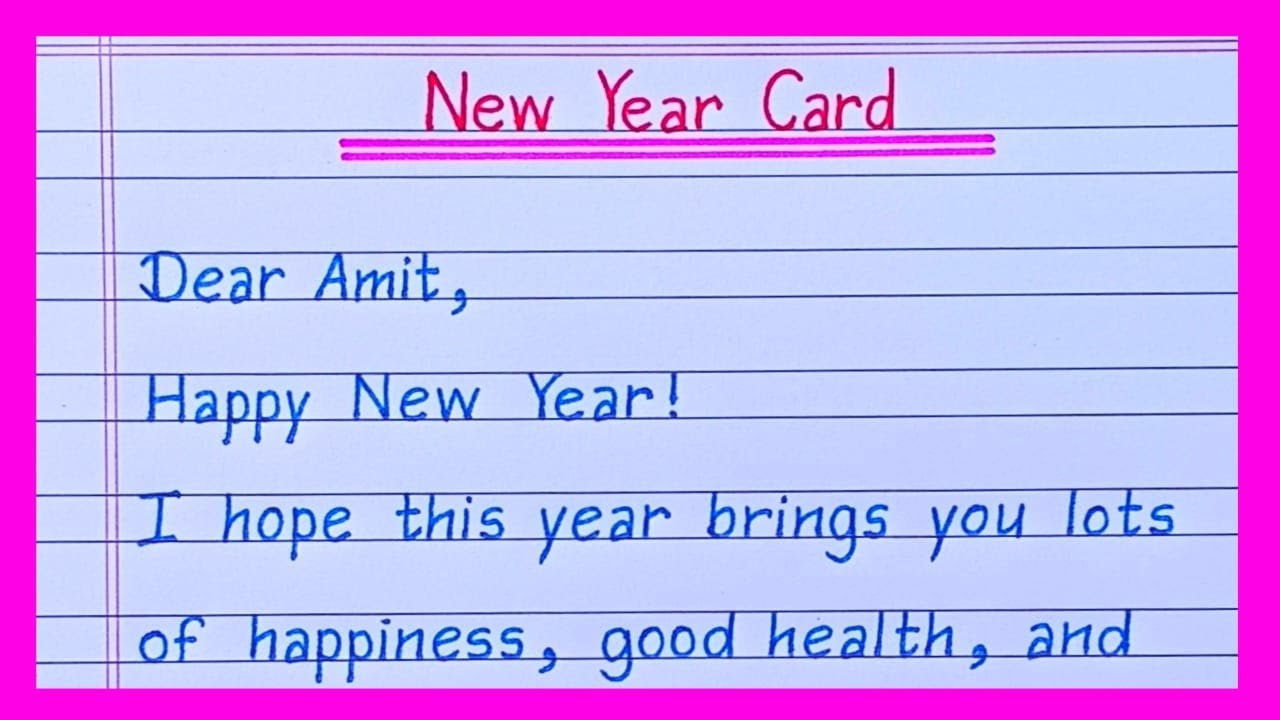 New Year Card
Dear Amit,
Happy New Year!
I hope this year brings you lots
of happiness, good health, and